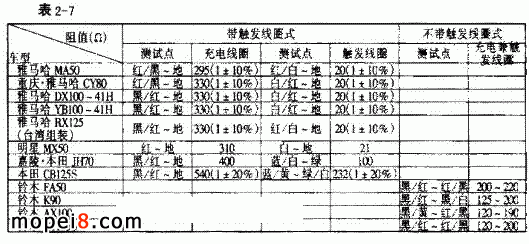 表 2-7
阻值(Ω) 带触发线圈式 不带触发线圈式
车型 测试点 充电线圈 测试点 触发线圈 测试点 充电兼触发线圈
雅马哈 MA50 红/黑~地 295(1±10%) 红/白~地 20(1±10%)
重庆·雅马哈 CY80 黑/红~地 330(1±10%) 白/红~地 20(1±10%)
雅马哈 DX100~41H 黑/红~地 330(1±10%) 白/红~地 20(1±10%)
雅马哈 YB100~41H 黑/红~地 330(1±10%) 白/红~地 20(1±10%)
雅马哈 RX125
(台湾组装) 黑/红~地 330(1±10%) 白/红~地 20(1±10%)
明星 MX50 红~地 310 白~地 21
嘉陵·本田 JH70 黑/红~地 400 蓝/白~绿 100
本田 CB125S 黑/红~地 540(1±20%) 蓝/黄~绿/白 232(1±20%)
铃木 FA50 黑/红~红/黑 200~220
铃木 K90 黑/红~黑/白 125~200
铃木 AX100 黑/黄~红/黑 120~190
黑/红~红/黑 120~200
mopei8.com